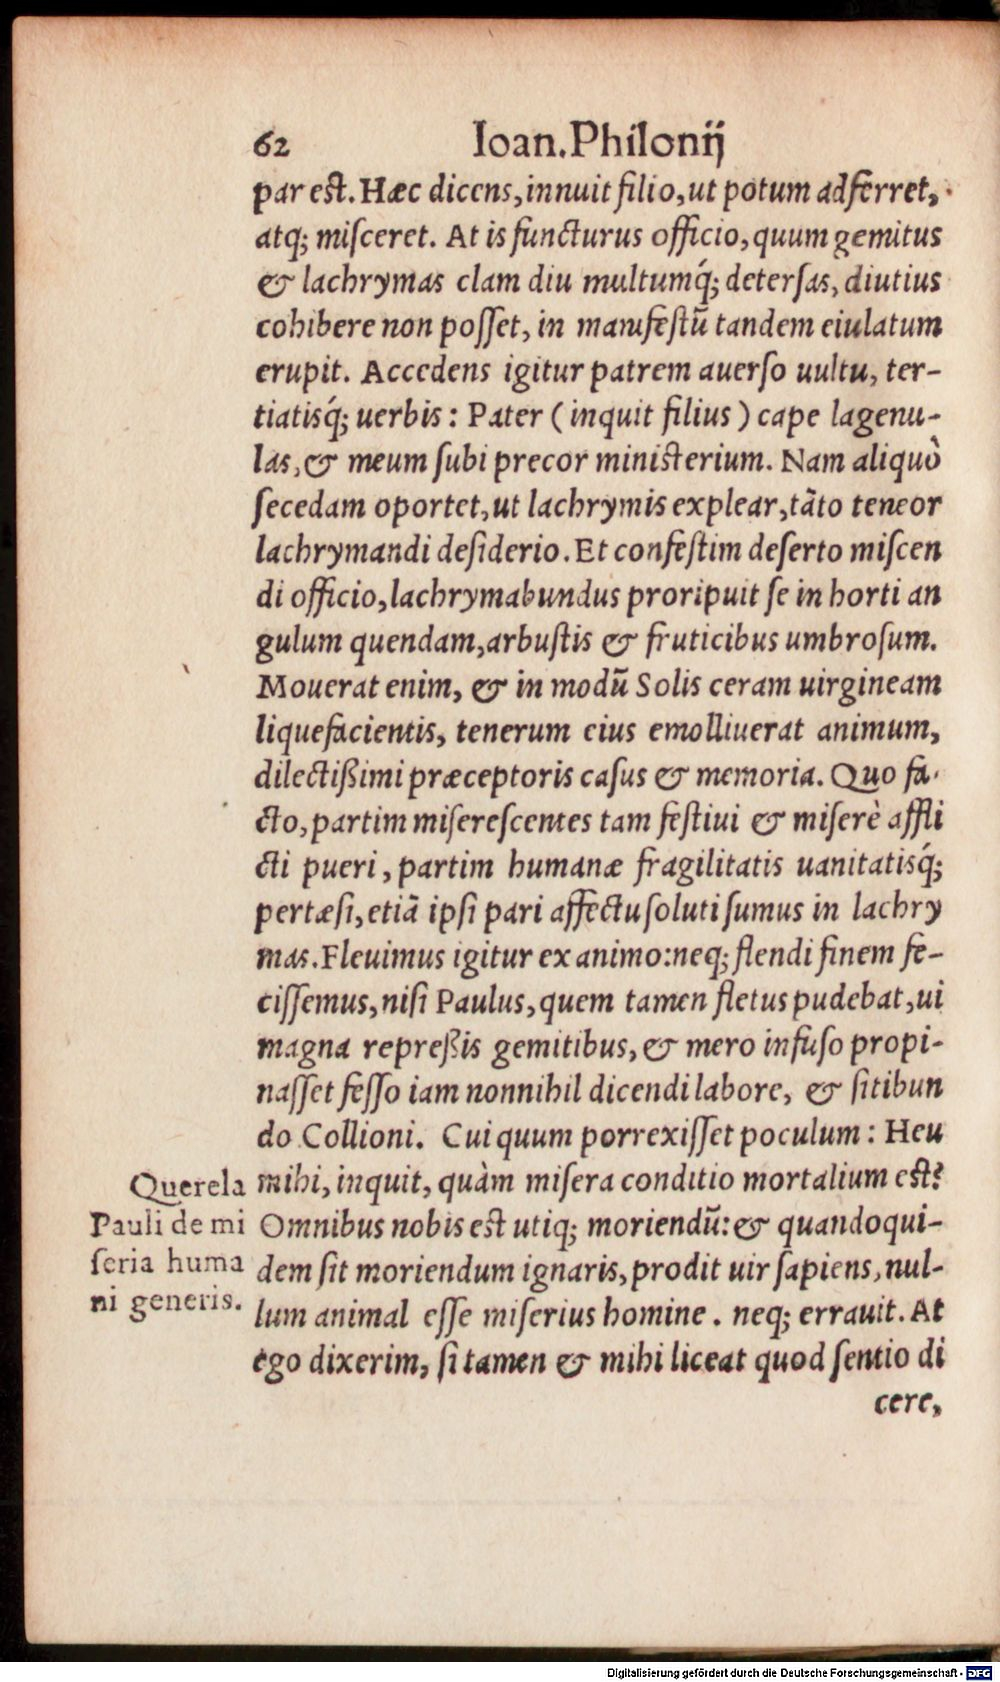 62 Ioan. Philonij
par est. Hæc dicens, innuit filio, ut potum adferret,
atq; misceret. At is functurus officio, quum gemitus
& lachrymas clam diu multumq́; detersas, diutius
cohibere non posset, in manifestū tandem eiulatum
erupit. Accedens igitur patrem auerso uultu, ter-
tiatisq́; uerbis: Pater (inquit filius) cape lagenu-
las, & meum subi precor ministerium. Nam aliquò
secedam oportet, ut lachrymis explear, tāto teneor
lachrymandi desiderio. Et confestim deserto miscen
di officio, lachrymabundus proripuit se in horti an
gulum quendam, arbustis & fruticibus umbrosum.
Mouerat enim, & in modū Solis ceram uirgineam
liquefacientis, tenerum eius emolliuerat animum,
dilectißimi præceptoris casus & memoria. Quo fa-
cto, partim miserescentes tam festiui & miserè affli
cti pueri, partim humanæ fragilitatis uanitatisq́;
pertæsi, etiā ipsi pari affectu soluti sumus in lachry
mas. Fleuimus igitur ex animo: neq; flendi finem fe-
cissemus, nisi Paulus, quem tamen fletus pudebat, ui
magna repreßis gemitibus, & mero infuso propi-
nasset fesso iam nonnihil dicendi labore, & sitibun
do Collioni. Cui quum porrexisset poculum: Heu
mihi, inquit, quàm misera conditio mortalium est?
Omnibus nobis est utiq; moriendū: & quandoqui-
dem sit moriendum ignaris, prodit uir sapiens, nul-
lum animal esse miserius homine. neq; errauit. At
ego dixerim, si tamen & mihi liceat quod sentio di
cere,
Querela
Pauli de mi
seria huma
ni generis.
Digitalisierung gefördert durch die Deutsche Forschungsgemeinschaft - DFG